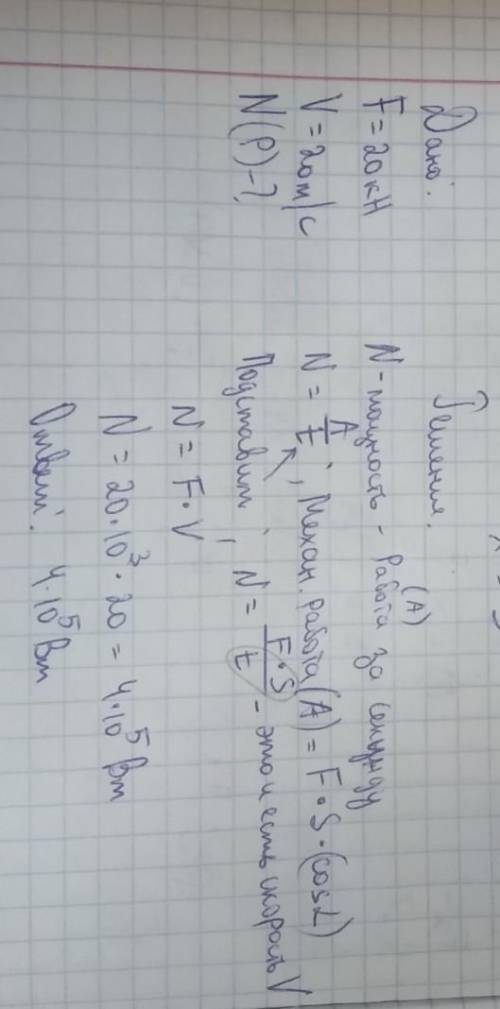 Дано:
F = 20кН
V = 20м/с
N(P)-?
Решение.
N - мощность - работа (A) за секунду
N = A/t ; Механ. работа (A) = F•S•(cosL)
Подставим ; N = F•S/t - это и есть скорость V
N = F•V
N = 20•10³•20 = 4•10⁵ Вт
Ответ: 4•10⁵ Вт